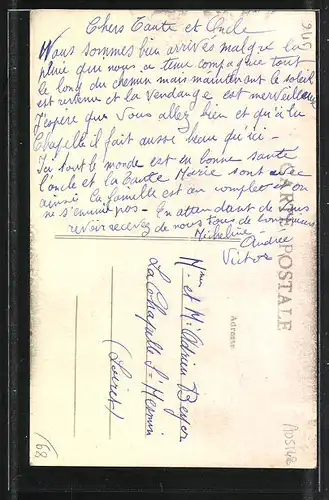 Chers Tante et Oncle
Nous sommes bien arrivés malgré la
pluie qui nous a tenu compagnie tout
le long du chemin mais maintenant le soleil
est revenu et la vendange est merveilleuse
J'espère que vous allez bien et qu'à la
Chapelle il fait aussi beau qu'ici -
Ici tout le monde est en bonne santé
l'oncle et la tante Marie sont avec
ainsi la famille est au complet et on
ne s'ennuie pas - En attendant de vous
revoir recevez de nous tous de bons baisers
Micheline
Andrée
Victor
CARTE POSTALE
Adresse
Mme et Mr Adrien
La Chapelle St Mesmin
(Loiret)
68